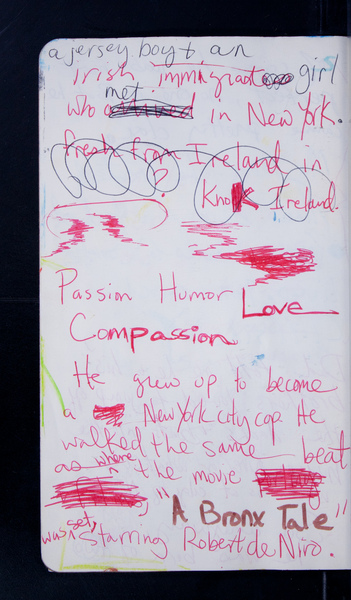 a jersey boy & an
Irish immigrant girl
who met in New York.
fresh from Ireland in
? Knok Ireland.
Passion Humor Love
Compassion
He grew up to become
a New York city cop. He
walked the same beat
as where the movie
"A Bronx Tale"
was set, starring Robert de Niro.